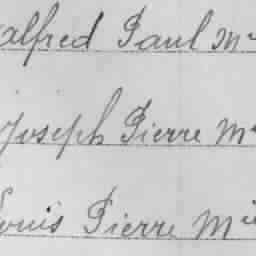 alfred Paul M
Joseph Pierre M
Louis Pierre M